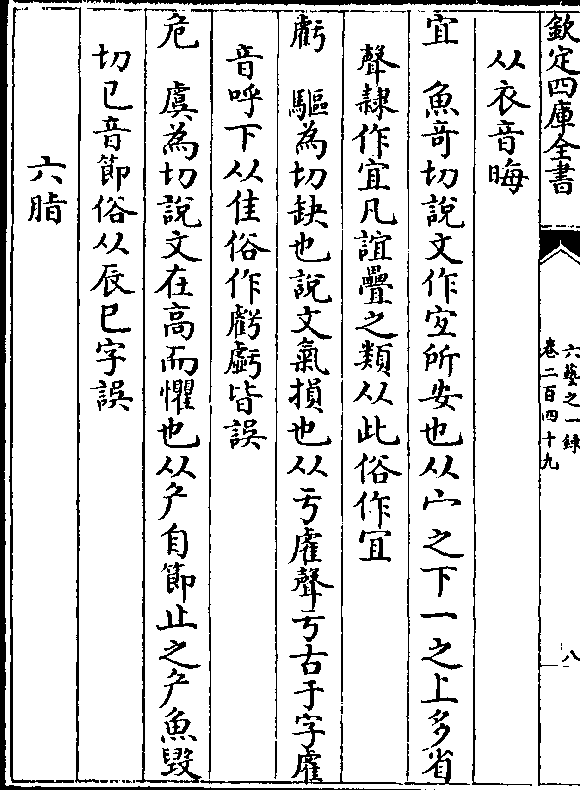 欽定四庫全書
六藝之一錄
卷二百四十九
八
从衣音晦
宜 魚奇切說文作宐所安也从宀之下一之上多省
聲隸作宜凡誼疊之類从此俗作冝
虧 驅為切缺也說文氣損也从亏雐聲亏古于字雐
音呼下从隹俗作虧虧皆誤
危 虞為切說文在高而懼也从厃自節止之厃魚毀
切㔾音節俗从辰巳字誤
六脂